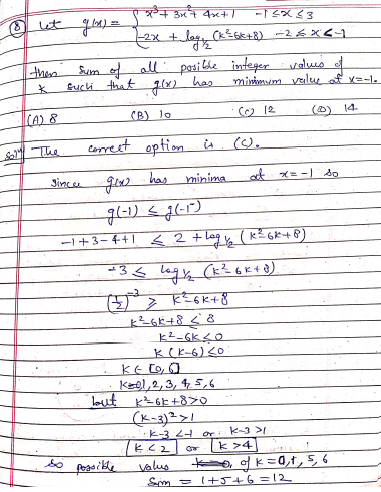 ⑧ Let g(x) = { x³ + 3x² + 4x + 1   -1 ≤ x ≤ 3
-2x + log_{1/2} (k²-6k+8)   -2 ≤ x < -1
then sum of all posible integer values of
k such that g(x) has minimum value at x=-1.
(A) 8   (B) 10   (C) 12   (D) 14
Solⁿ The correct option is (C).
Since g(x) has minima at x=-1 so
g(-1) ≤ g(-1⁻)
-1+3-4+1 ≤ 2 + log ½ (k²-6k+8)
-3 ≤ log ½ (k²-6k+8)
(½)⁻³ ≥ k²-6k+8
k²-6k+8 ≤ 8
k²-6k ≤ 0
k(k-6) ≤ 0
k ∈ [0,6]
k=0,1,2,3,4,5,6
but k²-6k+8>0
(k-3)²>1
k-3<-1 or k-3>1
k<2 or k>4
so possible values of k=0,1,5,6
Sum = 1+5+6=12